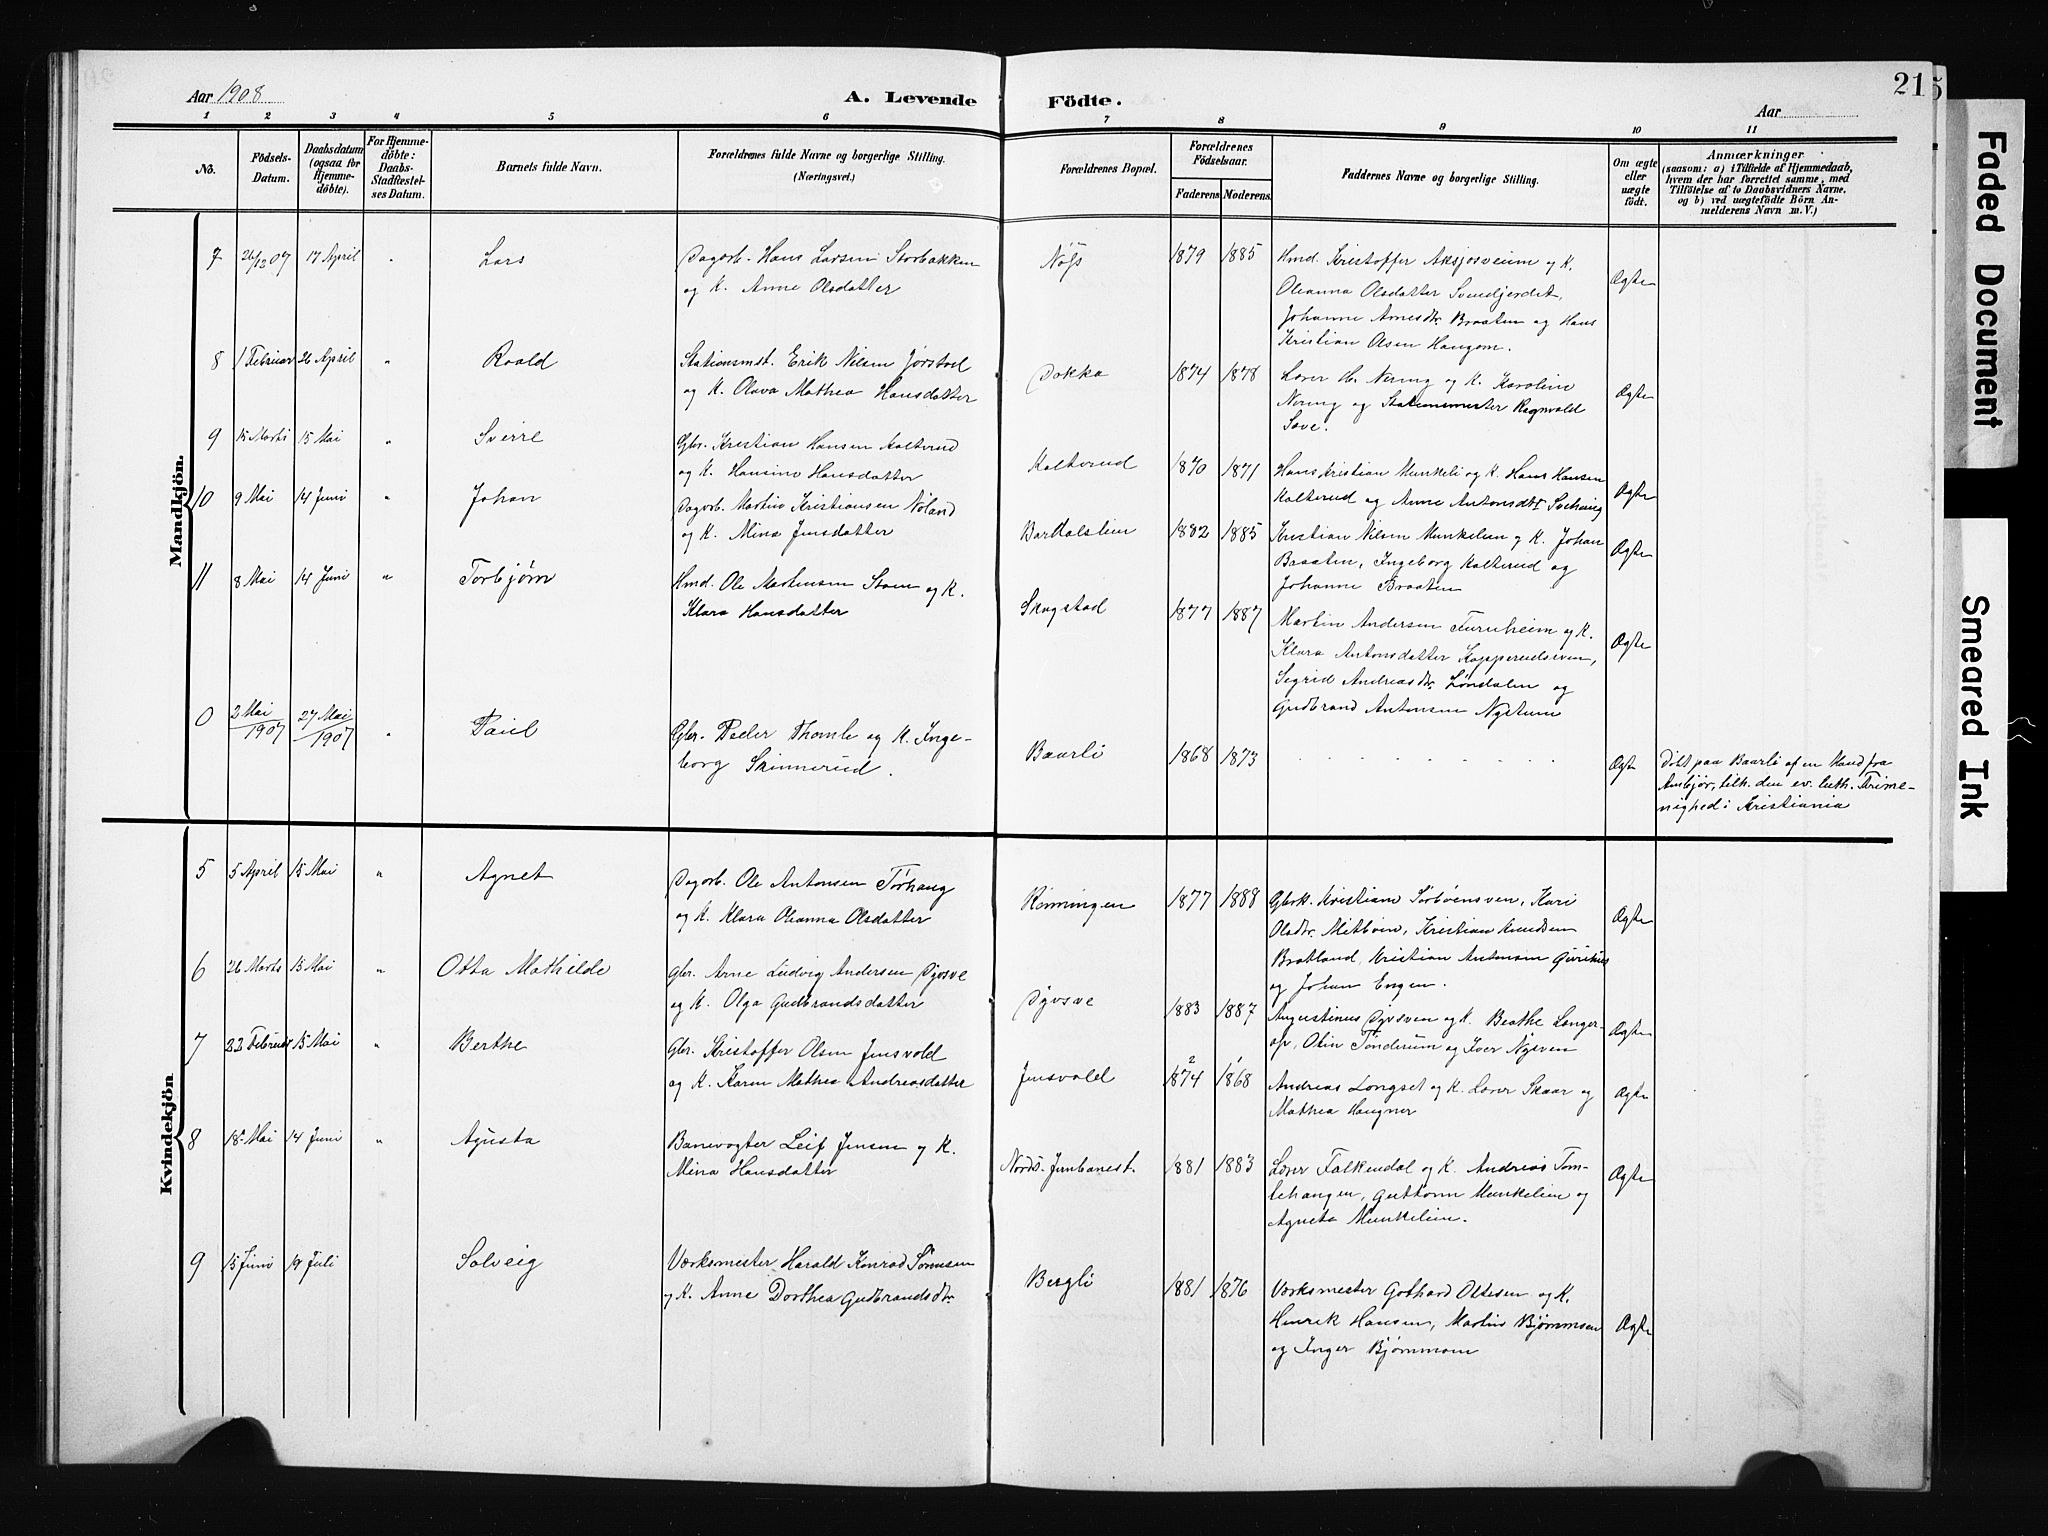 Aar 1908
A. Levende Födte.
Aar
21
5
1 2 3 4 5 6 7 8 9 10 11
No.
Födsels-
Datum.
Daabsdatum
(ogsaa for
Hjemme-
döbte).
For Hjemme-
döbte:
Daabs-
Stadfæstel-
ses Datum.
Barnets fulde Navn.
Forældrenes fulde Navne og borgerlige Stilling.
(Næringsvei.)
Forældrenes Bopæl.
Forældrenes
Födselsaar.
Faderens Moderens
Faddernes Navne og borgerlige Stilling.
Om ægte
eller
uægte
födt.
Anmærkninger
(saasom: a) i Tilfælde af Hjemmedaab,
hvem der har forrettet samme, med
Tilföielse af to Daabsvidners Navne,
og b) ved uægtefödte Börn An-
melderens Navn m. V.)
Mandkjön.
7 26/12 07 17 April " Lars
Dagarb. Hans Larsen Storbakken
og K. Anne Olsdatter
Nøss 1879 1885
Hmd. Kristoffer Aksjosveien og K.
Oleanna Olsdatter
Johanne Arnesdtr. Braaten og Hans
Kristian Olsen Haugom.
Ægte
8 1 Februar 26 April " Roald
Stationsmst. Erik Nilsen Jørstad
og K. Olava Mathea Hansdatter
Dokka 1874 1878
Lærer H. Nering og K. Karoline
Nering og Stationsmester Ragnvald
Save.
Ægte
9 15 Marts 15 Mai " Sverre
Gbr. Kristian Hansen Kalterud
og K. Hansine Hansdatter
Kalterud 1870 1871
Hans Kristian Munkeli og K. Hans Hansen
Kalterud og Anne Antonsdtr.
Ægte
10 9 Mai 14 Juni " Johan
Dagarb. Martin Kristiansen Nøland
og K. Mina Jensdatter
Bardalslien 1882 1885
Kristian Nilsen Munkelien og K. Johan
Braaten, Ingeborg Kalterud og
Johanne Braaten
Ægte
11 8 Mai 14 Juni " Torbjørn
Hmd. Ole Martinsen Stom og K.
Klara Hansdatter
Skogstad 1877 1887
Martin Andersen Furuheim og K.
Klara Antonsdatter Kopperudseien,
Sigrid Andreasdtr. Løndalen og
Gudbrand Antonsen Nystuen
Ægte
0 2 Mai/1907 27 Mai/1907 " Paul
Gbr. Peder Thomle og K. Inge-
borg Skinnerud.
Baarli 1868 1873
Ægte
Döbt paa Baarli af en Hand fra
Aasbjør, tilh. den ev. luth. Frime-
nighed i Kristiania
Kvindekjön
5 5 April 15 Mai " Agnet
Dagarb. Ole Antonsen Torhaug
og K. Klara Oleanna Olsdatter
Rønningen 1877 1888
Gbrk. Kristian Sørbøensven, Kari
Olsdtr. Mitbøen, Kristian Knudsen
Bratland, Kristian Antonsen
og Johan Engen.
Ægte
6 26 Marts 15 Mai " Otta Mathilde
Gbr. Arne Ludvig Andersen Dyvsve
og K. Olga Gudbrandsdatter
Dyvsve 1883 1887
Augustinus Dyvsven og K. Beathe Langer-
op, Otin Tønderum og Iver Nysven
Ægte
7 22 Februar 15 Mai " Berthe
Gbr. Kristoffer Olsen Jensvold
og K. Karen Mathea Andreasdatter
Jensvold 1874 1868
Andreas Longset og K. Lærer Skaar og
Mathea Haugner
Ægte
8 18 Mai 14 Juni " Agusta
Banevogter Leif Jensen og K.
Mina Hansdatter
Nords. Jernbanest. 1881 1883
Lærer Falkendal og K. Andreas Tom-
lehaugen, Guttorm Munkelien og
Agnete Munkelien.
Ægte
9 15 Juni 19 Juli Solveig
Værksmester Harald Konrad Sørensen
og K. Anne Dorthea Gudbrandsdtr.
Bergli 1881 1876
Værksmester Gothard Ottesen og K.
Henrik Hansen, Martin Bjørnmson
og Inger Bjørnmson
Ægte
Faded Document
Smeared Ink